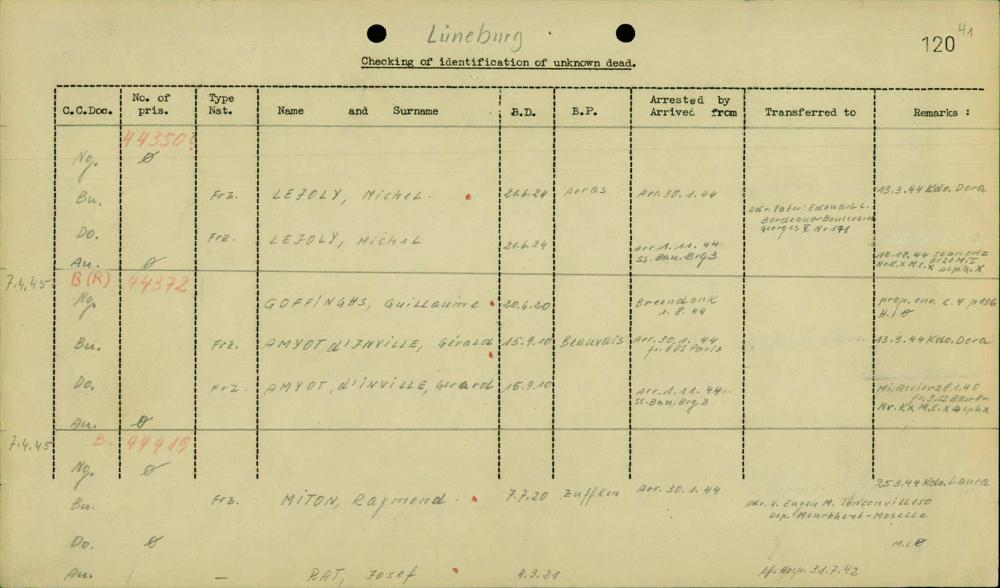 Lüneburg
120 41
Checking of identification of unknown dead.
C.C.Doc. No. of pris. Type Nat. Name and Surname B.D. B.P. Arrested by Arrived from Transferred to Remarks :
Ng. Ø
Bu. Frz. LEJOLY, Michel. 21.6.24 Arras Arr. 30.1.44 13.3.44 Kdo. Dora
Adr. Vater: Edouard L.
Bordeaux Boulevard
Georges V Nr 171
Do. Frz. LEJOLY, Michel 21.6.24 Arr. 1.11.44
SS. Bau. Brg 3
Au. Ø
7.4.45 B (R) 44372
Ng. GOFFINGHS, Guillaume 20.6.20 Breendonk
1.8.44
prop. env. C.4 p656
Bu. Frz. AMYOT, d'INVILLE, Gérald 15.9.10 Beauvais Arr. 30.1.44
fr. BDS Paris
13.3.44 Kdo. Dora
Do. Frz. AMYOT, d'INVILLE, Gerard 15.9.10 Arr. 1.11.44
SS. Bau. Brg 3
Au. Ø
7.4.45 B. 44419
Ng. Ø
Bu. Frz. MITON, Raymond. 7.7.20 Zuffken Arr. 30.1.44 25.3.44 Kdo. Laura
Adr. V. Eugen M.
Do. Ø M.C Ø
Au. — RAT, Josef 4.3.21 31.7.42